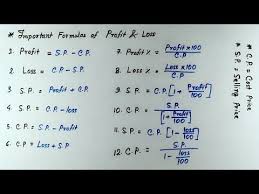 # Important Formulas of Profit & Loss
1. Profit = S.P. - C.P.
2. Loss = C.P. - S.P.
3. S.P. = Profit + C.P.
4. S.P. = C.P. - loss
5. C.P. = S.P. - Profit
6. C.P = Loss + S.P
7. Profit % = Profit × 100 / C.P
8. Loss % = Loss × 100 / C.P
9. S.P. = C.P. [1 + Profit / 100]
10. C.P. = S.P. / 1 + Profit / 100
11. S.P. = C.P. [1 - loss / 100]
12. C.P. = S.P. / 1 - loss / 100
* C.P. = Cost Price
* S.P. = Selling Price